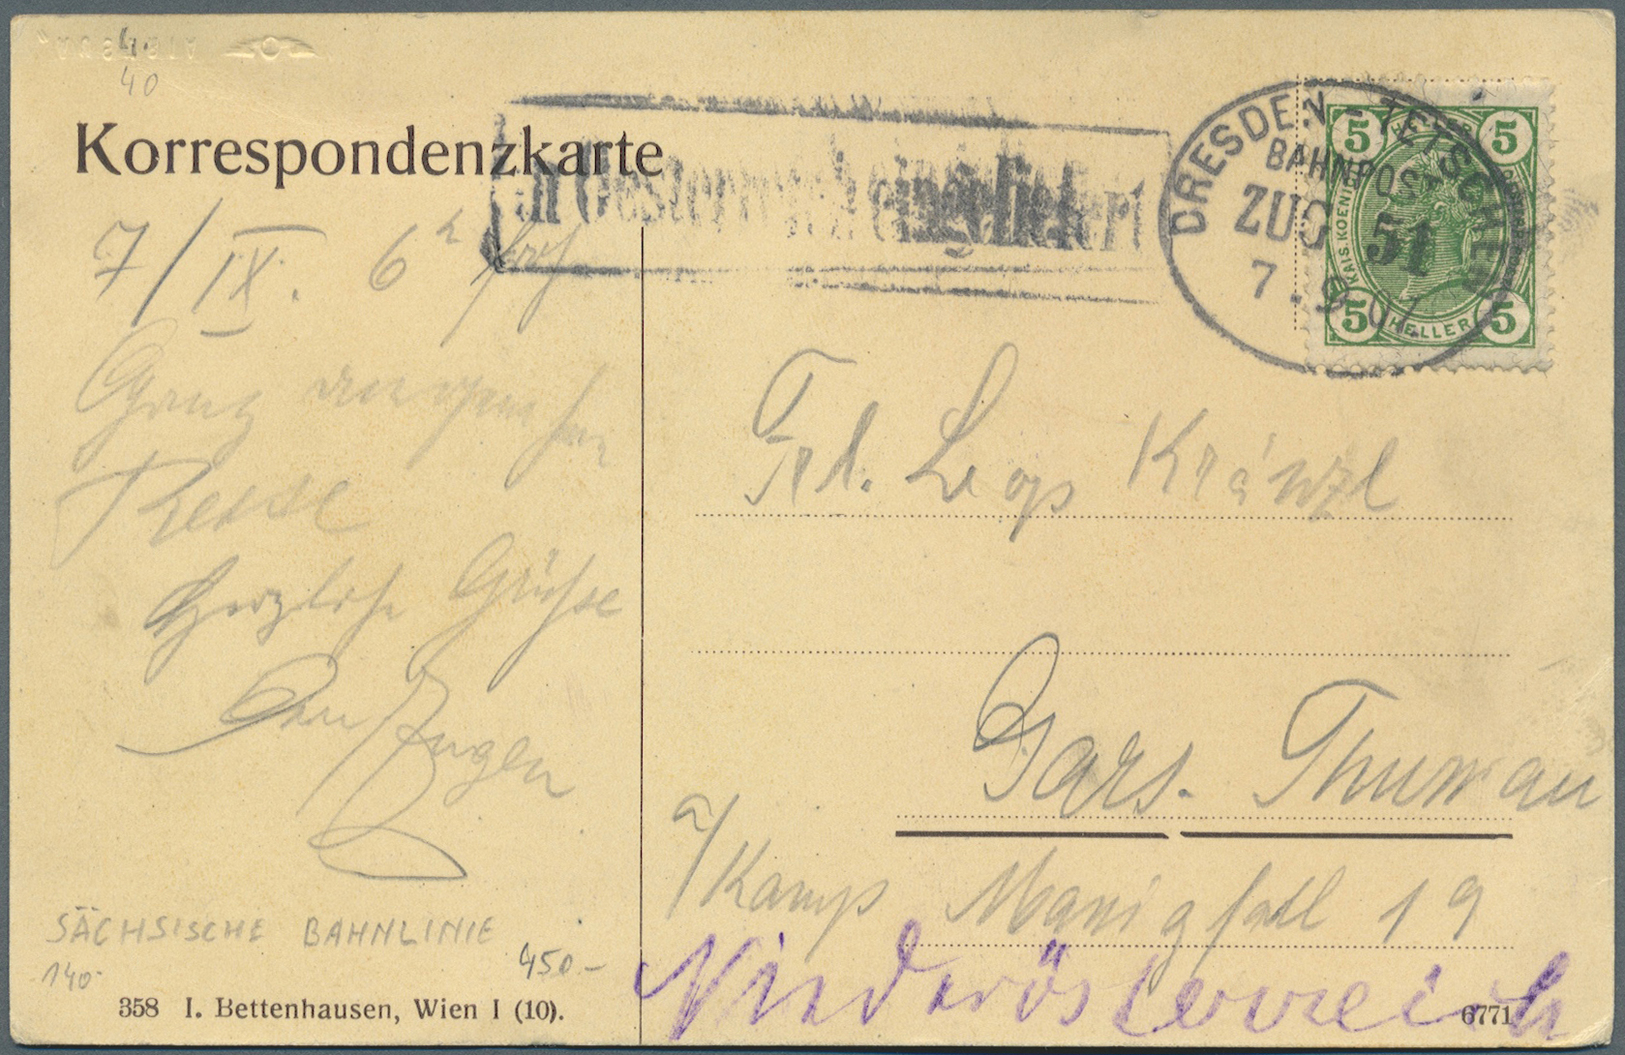 4.
40
Korrespondenzkarte
in Oesterreich eingeliefert
DRESDEN - TETSCHEN
BAHNPOST
ZUG 51
7.9.07
5 HELLER 5
5 HELLER 5
7/IX. 6h früh
Ganz angenehm
Reise
Herzliche Grüße
Dein Eugen
Frl. Leop Kränzl
Gars. Thunau
a/Kamp Manigfall 19
Niederösterreich
SÄCHSISCHE BAHNLINIE
140-
450-
358 I. Bettenhausen, Wien I (10).
6771